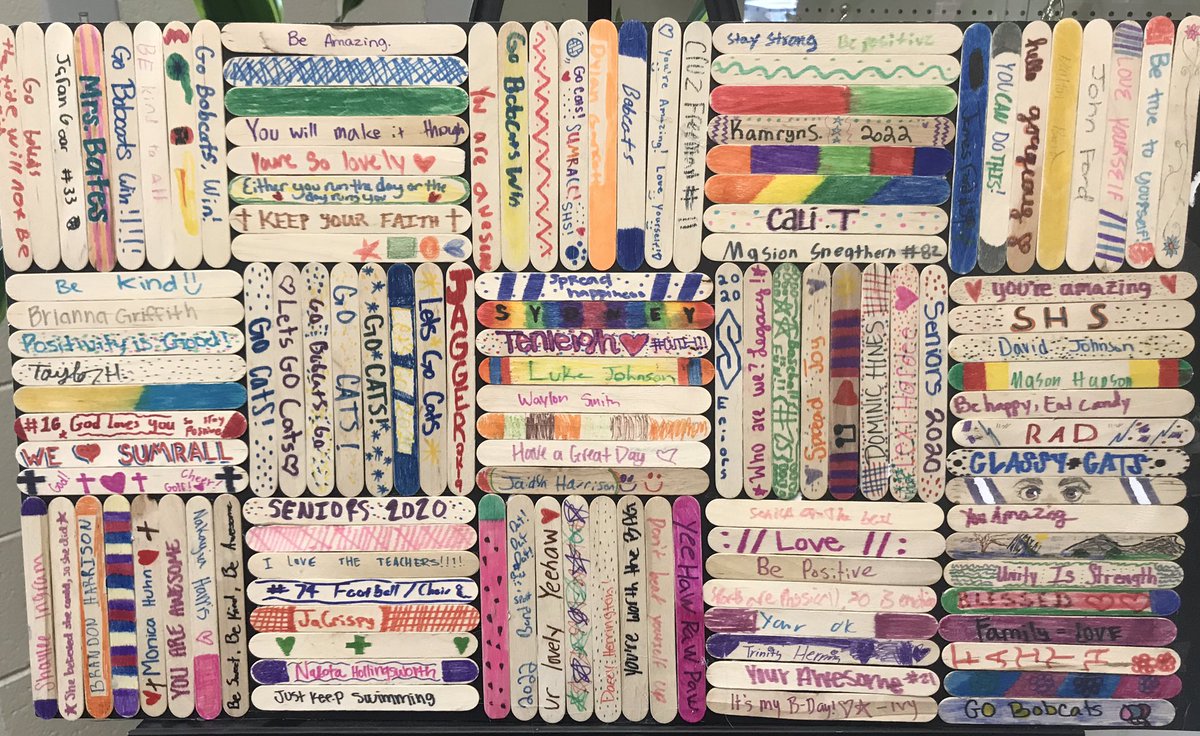 Go
will not be
Jalan Goar #33
Mrs. Bates
Go Bobcats Win!!!!!
BE Kind to all
Go Bobcats, Win!
Be Amazing.
You will make it though
You're So lovely
Either you run the day or the
day runs you
KEEP YOUR FAITH
You are awesome
Go Bobcats Win
Go Cats! SUMRALL! SHS!
Bobcats
You're Amazing! Love Yourself!
Stay Strong Be positive
Kamryn S. 2022
Cali T
Masion Sneathern #82
YOU CAN DO THIS!
hello gorgeous
John Ford
LOVE YOURSELF
Be true to yourself!
Be Kind!!
Brianna Griffith
Positivity is Good!
Taylor H.
#16 God loves you so stay
Positive
WE SUMRALL
God! Cheer Golf!
GO CATS!
Lets GO Cats
Go Bobcats Go
GO CATS!
GO CATS!
Lets Go Cats
Spread
happiness
SYDNEY
Tenleigh
Luke Johnson
Waylon Smith
Have a Great Day
Jaidah Harrison
2020
Who are we? Legacy!
Spread Joy
DOMINIC HINES
Seniors 2020
You're amazing
SHS
David Johnson
Mason Hudson
Be happy, Eat Candy
RAD
CLASSY CATS
Shaylee Ingram
She believed she could, so she did
BRANDON HARRISON
Monica Hunn
YOU ARE AWESOME
Nakayla Harris
Be Sweet, Be Kind, Be Awesome
SENIORS 2020
I LOVE THE TEACHERS!!!!
#74 Football/Choir &
JaCrispy
Nakota Hollingsworth
Just keep Swimming
2022
ur lovely Yeehaw
Dacey Herrington!
You're worth the
Don't beat yourself up
Yee Haw Raw Paw
Love
Be Positive
Your ok
Trinity Herrin
Your Awesome #21
It's my B-Day! - IVY
You Amazing
Unity Is Strength
BLESSED
Family = LOVE
FAITH
GO Bobcats